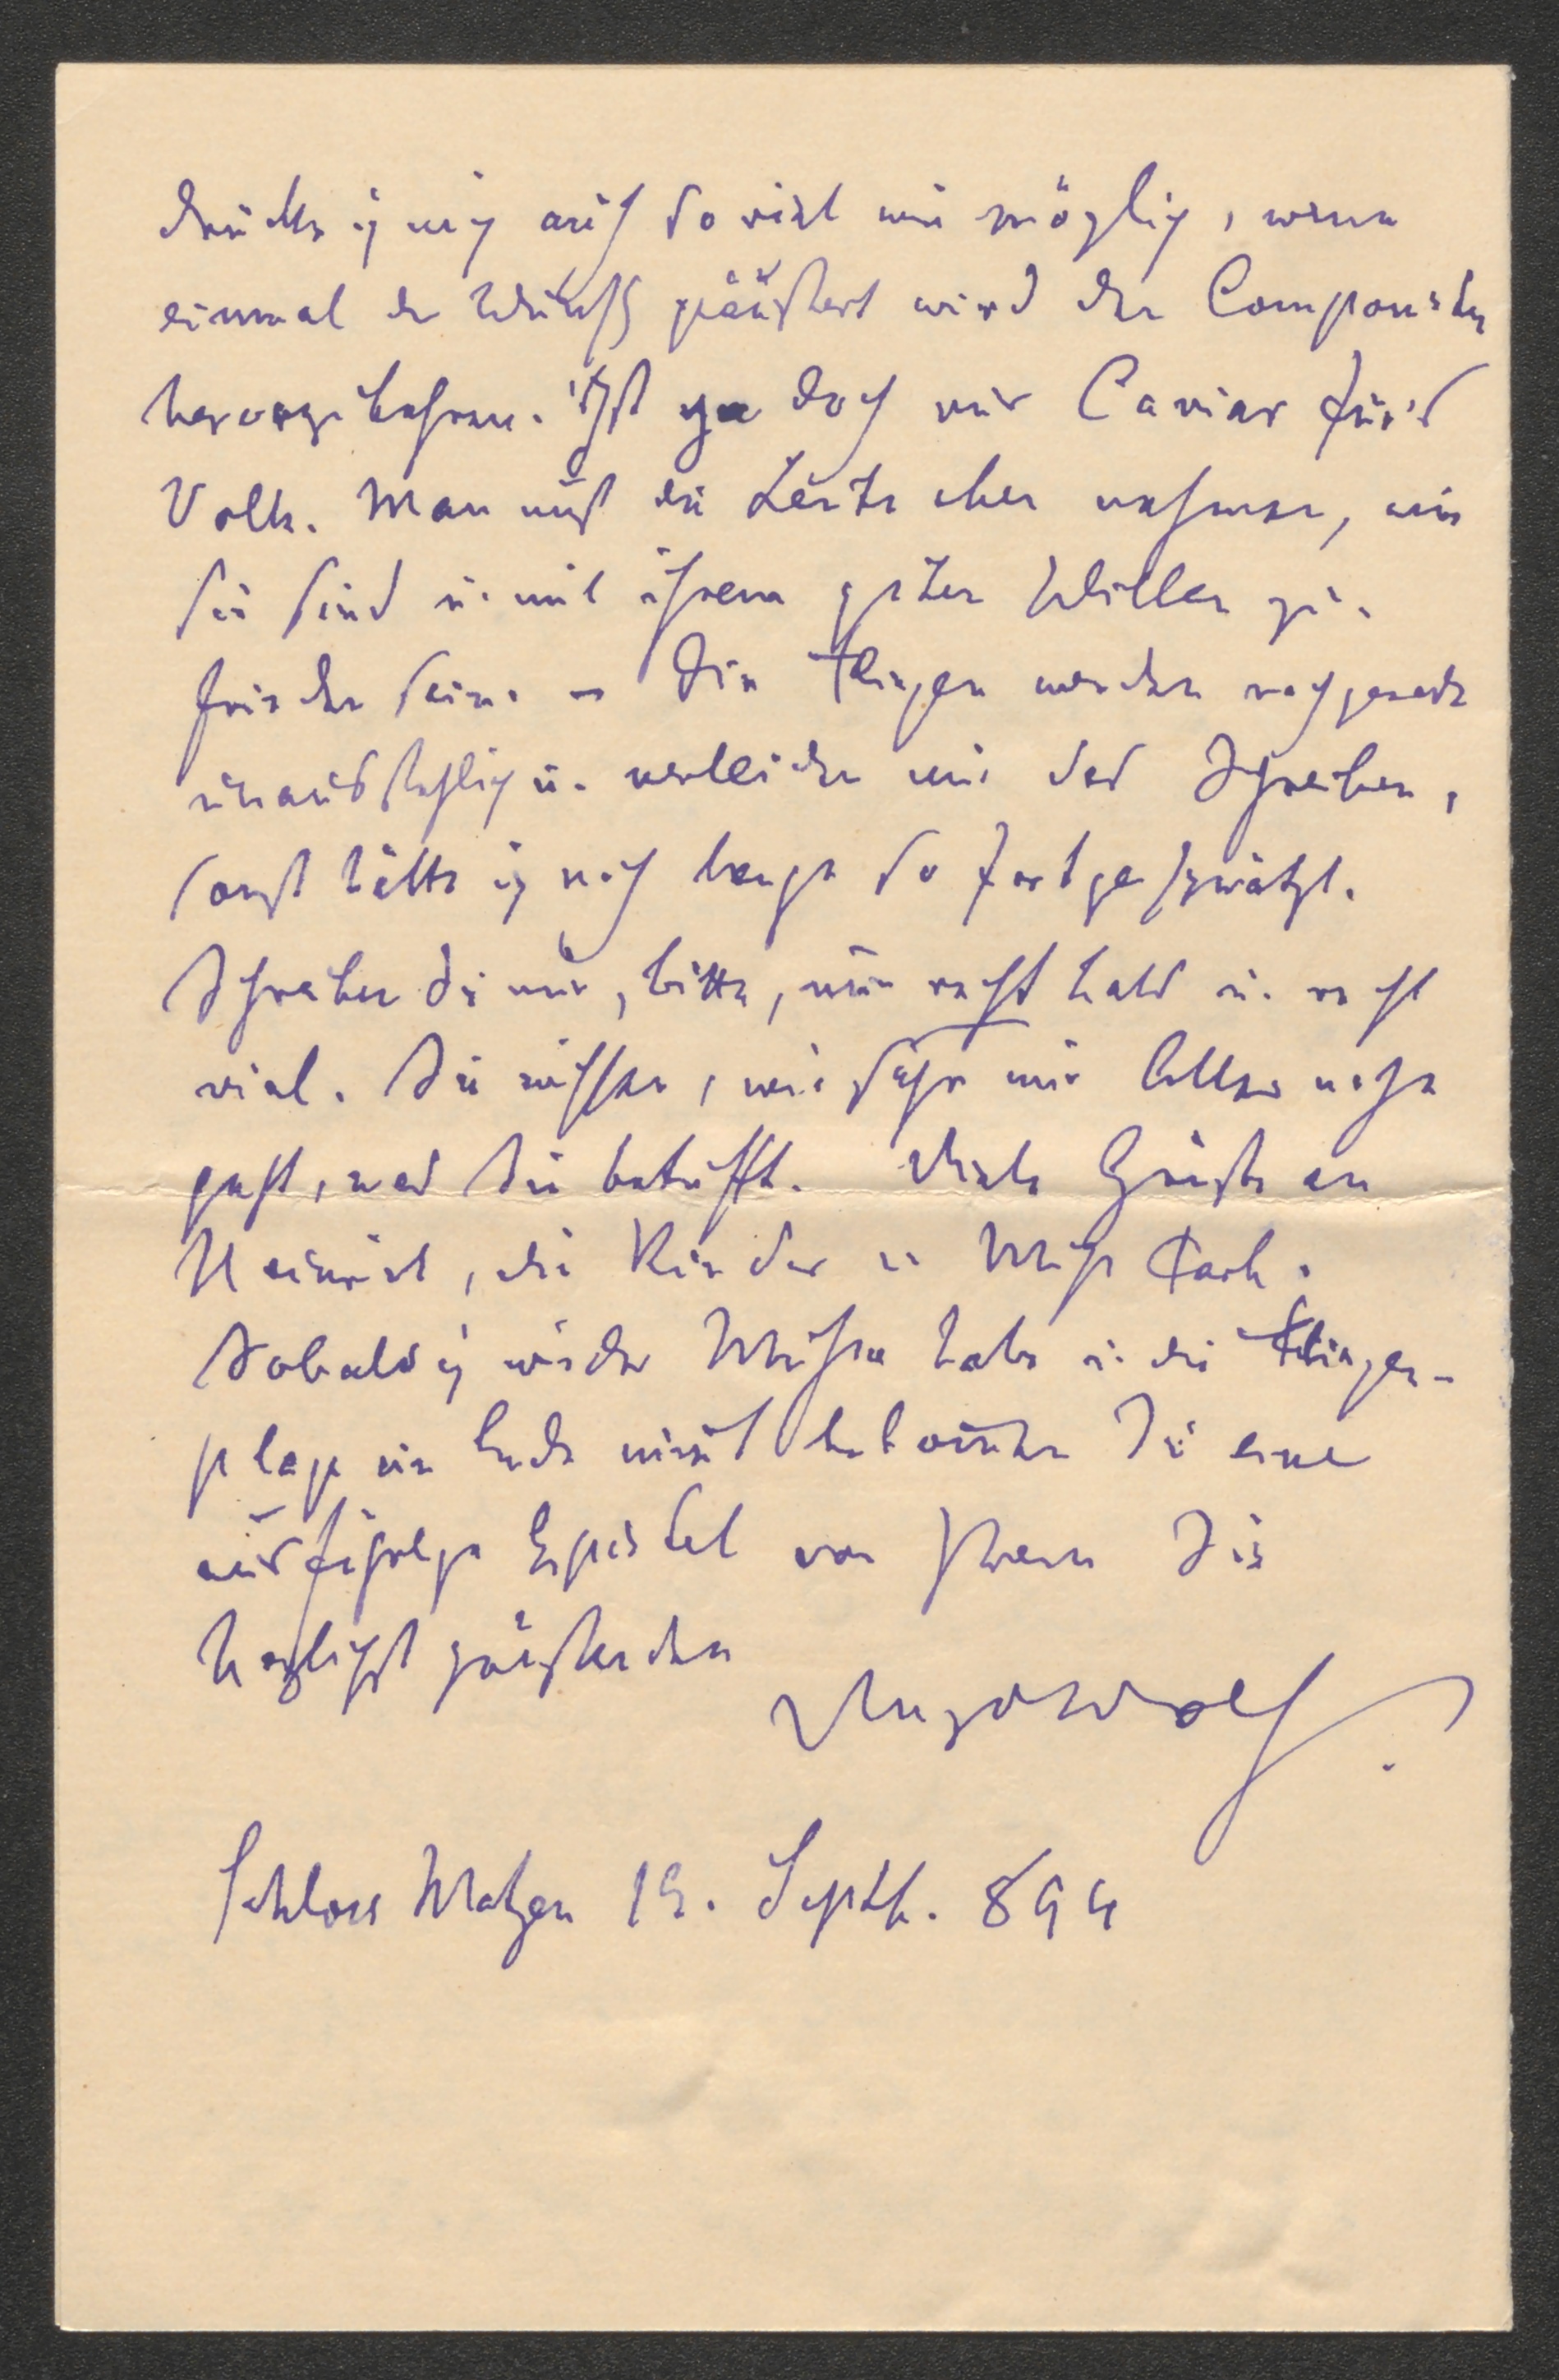 drücke ich mich auch so viel wie möglich, wenn
einmal der Wunsch geäußert wird den Componisten
hervorzukehren. 's ist ja doch nur Caviar für's
Volk. Man muß die Leute eben nehmen, wie
sie sind u. mit ihrem guten Willen zu-
frieden sein. – Die Fliegen werden nachgerade
unausstehlich u. verleiden mir das Schreiben,
sonst hätte ich noch lange so fortgeschwätzt.
Schreiben Sie mir, bitte, nun recht bald u. recht
viel. Sie wissen, wie sehr mir Alles nahe
geht, was Sie betrifft. Viele Grüße an
Heinrich, die Kinder u Miß Park.
Sobald ich wieder Muße habe u. die Fliegen-
plage ein Ende nimmt bekommen Sie eine
ausführliche Epistel von Ihrem Sie
herzlichst grüßenden
Hugo Wolf
Schloss Matzen 19. Septb. 894